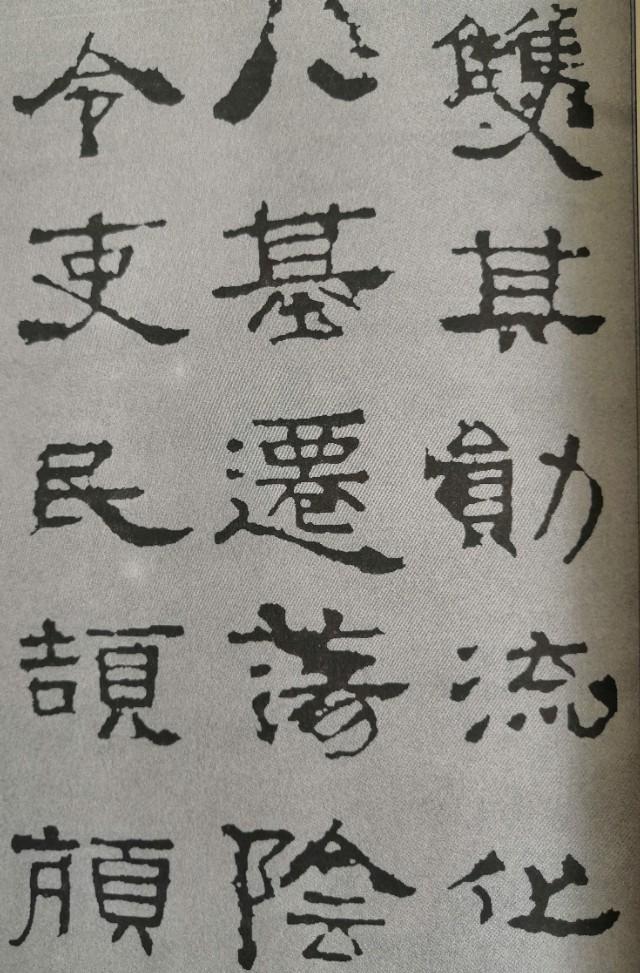 雙其勛流化
八基遷蕩陰
令吏民頡頏